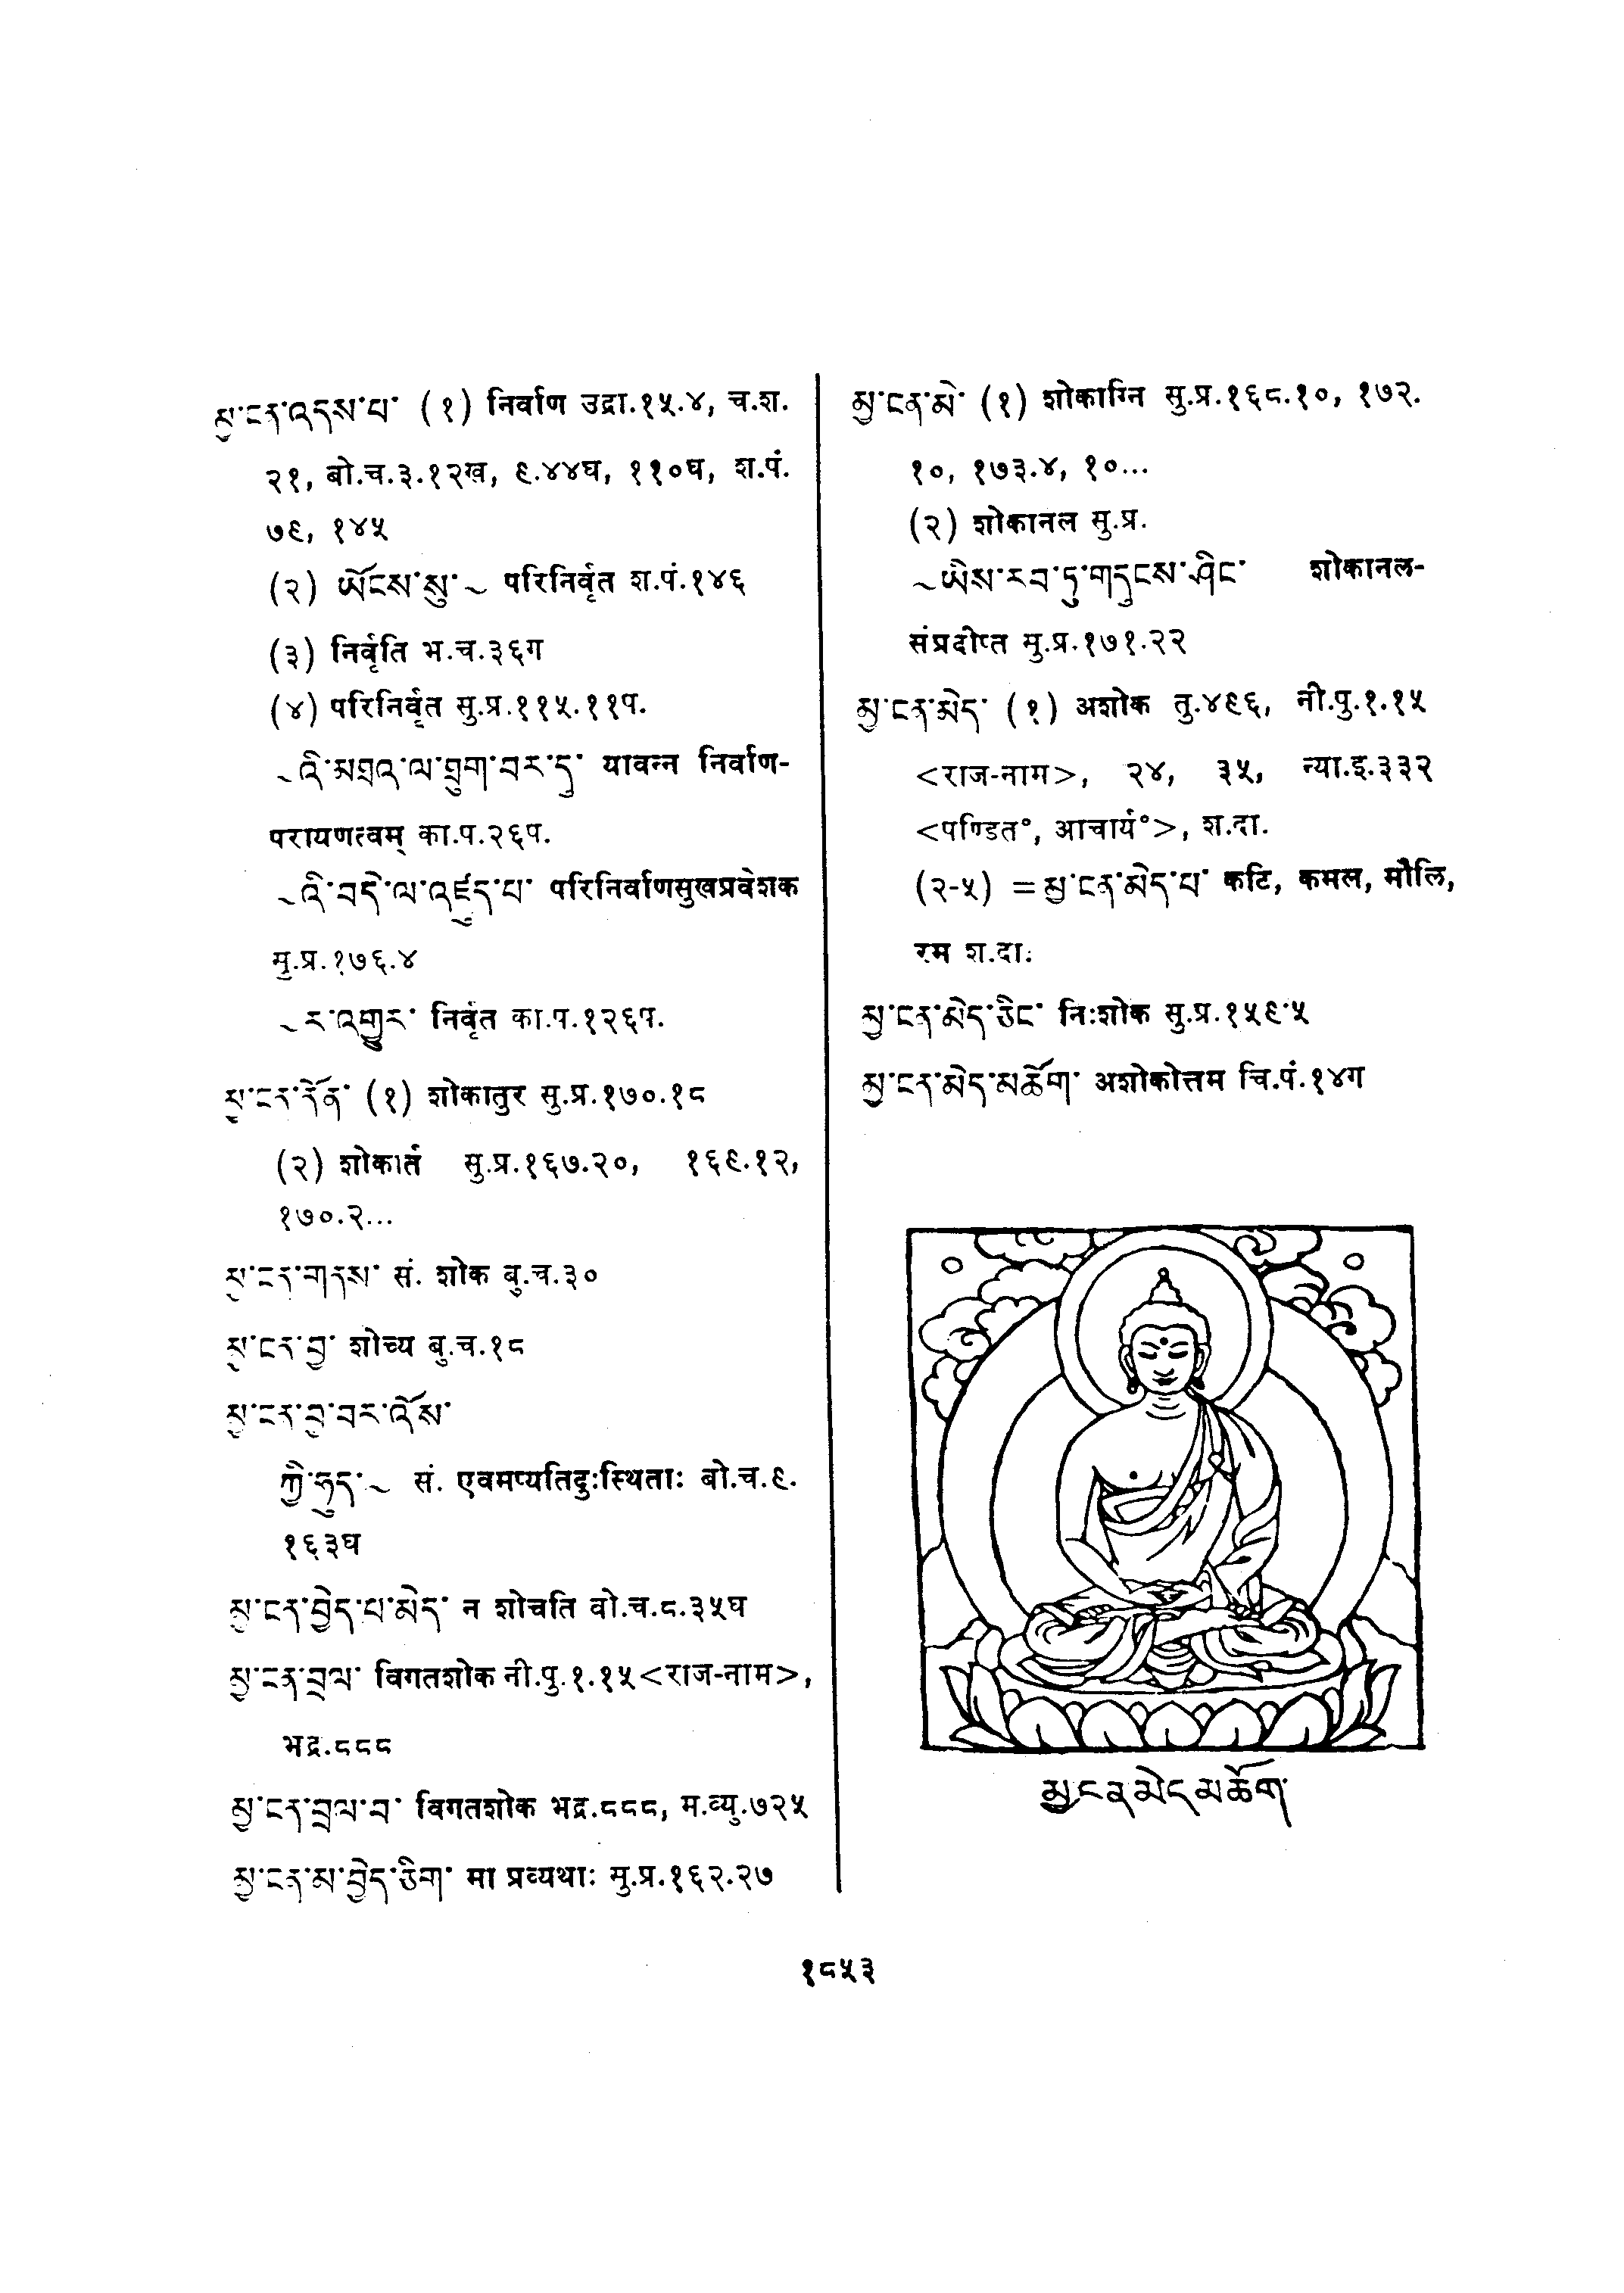 མྱ་ངན་འདས་པ་ (१) निर्वाण उद्रा.१५.४, च.श.
२१, बो.च.३.१२ख, ९.४४घ, ११०घ, श.पं.
७९, १४५
(२) ཡོངས་སུ་~ परिनिर्वृत श.पं.१४६
(३) निर्वृति भ.च.३६ग
(४) परिनिर्वृत सु.प्र.११५.११प.
~འི་མཐའ་ལ་ཐུག་བར་དུ་ यावन्न निर्वाण-
परायणत्वम् का.प.२६प.
~འི་བདེ་ལ་འཛུད་པ་ परिनिर्वाणसुखप्रवेशक
सु.प्र.१७६.४
~ར་འགྱུར་ निर्वृत का.प.१२६प.
མྱ་ངན་དོན་ (१) शोकातुर सु.प्र.१७०.१८
(२) शोकार्त सु.प्र.१६७.२०, १६९.१२,
१७०.२...
མྱ་ངན་གནས་ सं. शोक बु.च.३०
མྱ་ངན་བྱ་ शोच्य बु.च.१८
མྱ་ངན་བྱ་བར་འོས་
ཀྱི་ཧུད་~ सं. एवमप्यतिदुःस्थिताः बो.च.९.
१६३घ
མྱ་ངན་བྱེད་པ་མེད་ न शोचति बो.च.८.३५घ
མྱ་ངན་བྲལ་ विगतशोक नी.पु.१.१५<राज-नाम>,
भद्र.८८८
མྱ་ངན་བྲལ་བ་ विगतशोक भद्र.८८८, म.व्यु.७२५
མྱ་ངན་མ་བྱེད་ཅིག་ मा प्रव्यथाः सु.प्र.१६२.२७
མྱ་ངན་མེ་ (१) शोकाग्नि सु.प्र.१६८.१०, १७२.
१०, १७३.४, १०...
(२) शोकानल सु.प्र.
~ཡིས་རབ་ཏུ་གདུངས་ཤིང་ शोकानल-
संप्रदीप्त सु.प्र.१७१.२२
མྱ་ངན་མེད་ (१) अशोक तु.४९६, नी.पु.१.१५
<राज-नाम>, २४, ३५, न्या.इ.३३२
<पण्डित°, आचार्य°>, श.दा.
(२-५) =མྱ་ངན་མེད་པ་ कटि, कमल, मौलि,
रम श.दा.
མྱ་ངན་མེད་ཅིང་ निःशोक सु.प्र.१५९.५
མྱ་ངན་མེད་མཆོག་ अशोकोत्तम चि.पं.१४ग
མྱ་ངན་མེད་མཆོག་
१८५३